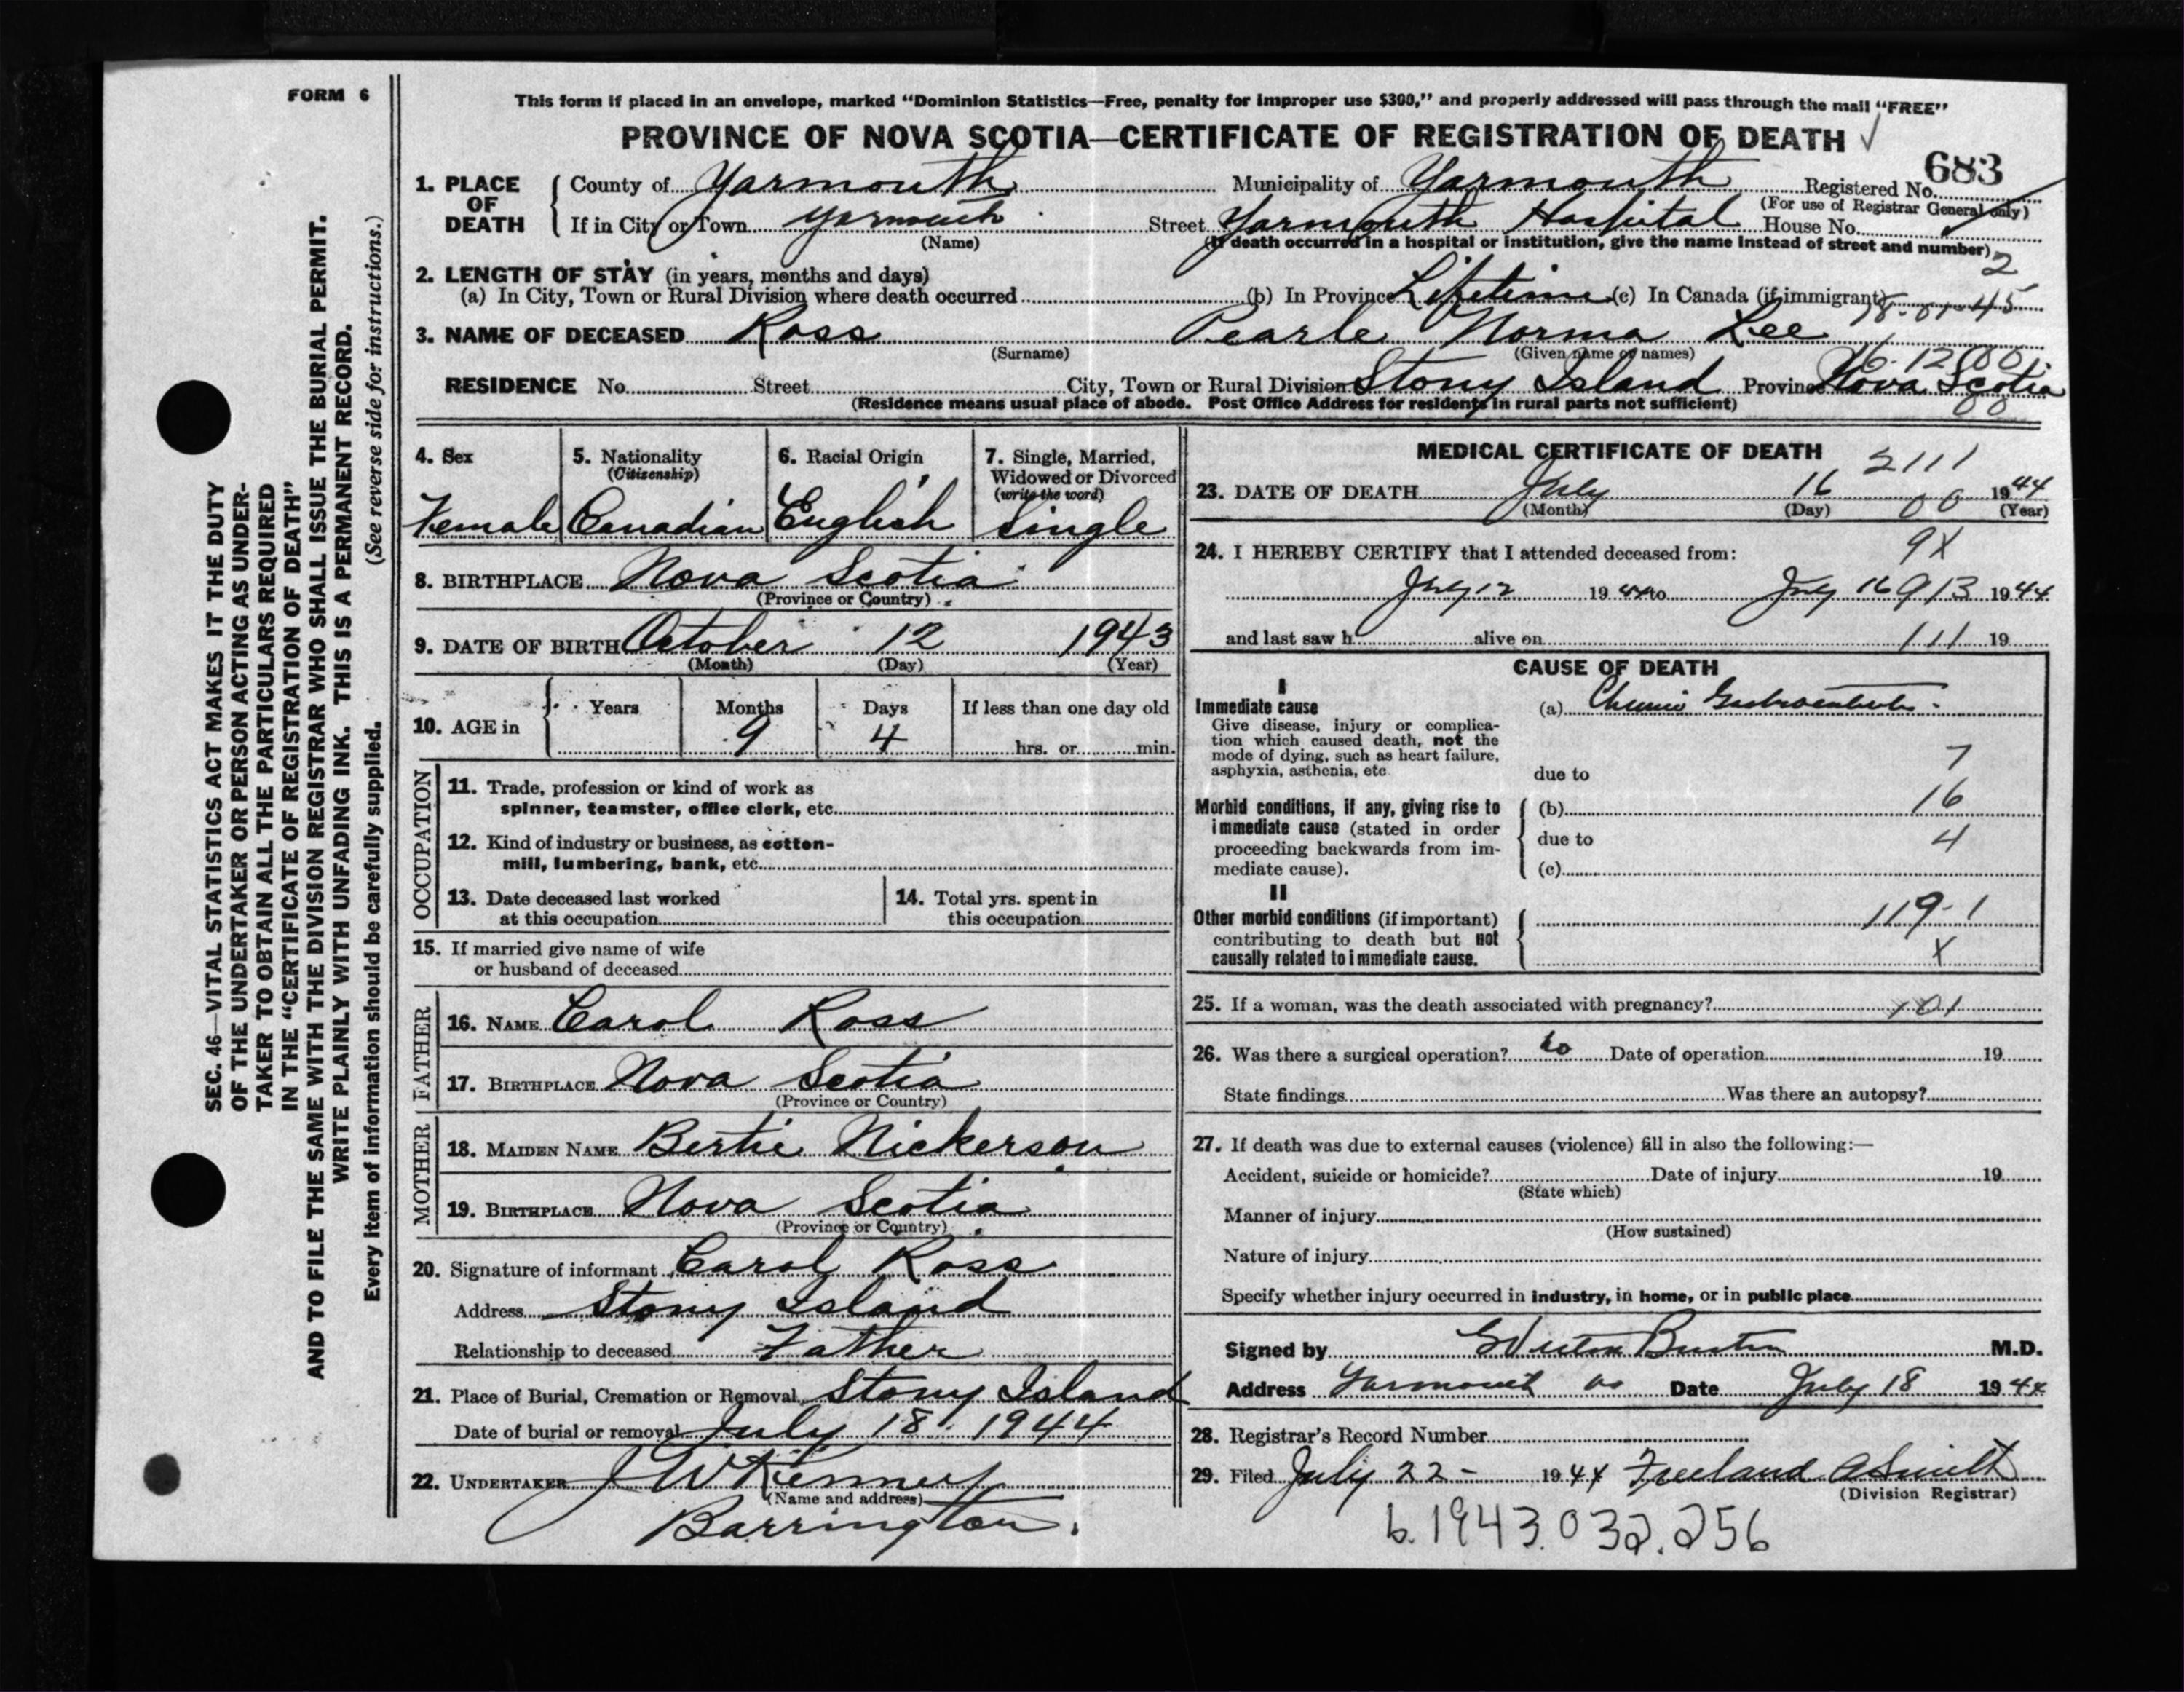 FORM 6
SEC. 46—VITAL STATISTICS ACT MAKES IT THE DUTY
OF THE UNDERTAKER OR PERSON ACTING AS UNDER-
TAKER TO OBTAIN ALL THE PARTICULARS REQUIRED
IN THE "CERTIFICATE OF REGISTRATION OF DEATH"
AND TO FILE THE SAME WITH THE DIVISION REGISTRAR WHO SHALL ISSUE THE BURIAL PERMIT.
WRITE PLAINLY WITH UNFADING INK. THIS IS A PERMANENT RECORD.
Every item of information should be carefully supplied. (See reverse side for instructions.)
This form if placed in an envelope, marked "Dominion Statistics—Free, penalty for improper use $300," and properly addressed will pass through the mail "FREE"
PROVINCE OF NOVA SCOTIA—CERTIFICATE OF REGISTRATION OF DEATH
683
1. PLACE OF DEATH County of Yarmouth Municipality of Yarmouth Registered No.
(For use of Registrar General only)
If in City or Town Yarmouth Street Yarmouth Hospital House No.
(Name) (If death occurred in a hospital or institution, give the name instead of street and number)
2. LENGTH OF STAY (in years, months and days) 2
(a) In City, Town or Rural Division where death occurred (b) In Province Lifetime (c) In Canada (if immigrant)
3. NAME OF DECEASED Ross Pearle Norma Lee
(Surname) (Given name or names)
RESIDENCE No. Street City, Town or Rural Division Stony Island Province Nova Scotia
(Residence means usual place of abode. Post Office Address for residents in rural parts not sufficient) 00
4. Sex Female
5. Nationality (Citizenship) Canadian
6. Racial Origin English
7. Single, Married, Widowed or Divorced (write the word) Single
8. BIRTHPLACE Nova Scotia
(Province or Country)
9. DATE OF BIRTH October 12 1943
(Month) (Day) (Year)
10. AGE in Years Months 9 Days 4 If less than one day old hrs. or min.
OCCUPATION
11. Trade, profession or kind of work as
spinner, teamster, office clerk, etc.
12. Kind of industry or business, as cotton-
mill, lumbering, bank, etc.
13. Date deceased last worked
at this occupation
14. Total yrs. spent in
this occupation
15. If married give name of wife
or husband of deceased
FATHER
16. NAME Carol Ross
17. BIRTHPLACE Nova Scotia
(Province or Country)
MOTHER
18. MAIDEN NAME Bertie Nickerson
19. BIRTHPLACE Nova Scotia
(Province or Country)
20. Signature of informant Carol Ross
Address Stony Island
Relationship to deceased Father
21. Place of Burial, Cremation or Removal Stony Island
Date of burial or removal July 18 1944
22. UNDERTAKER J W Kenney
(Name and address)
Barrington.
MEDICAL CERTIFICATE OF DEATH
2111
23. DATE OF DEATH July 16 1944
(Month) (Day) 00 (Year)
24. I HEREBY CERTIFY that I attended deceased from: 9X
July 12 19 44 to July 16 913 19 44
and last saw h alive on 111 19
CAUSE OF DEATH
I
Immediate cause
Give disease, injury or complica-
tion which caused death, not the
mode of dying, such as heart failure,
asphyxia, asthenia, etc
(a) Gastroenteritis
7
due to
Morbid conditions, if any, giving rise to
immediate cause (stated in order
proceeding backwards from im-
mediate cause).
(b) 16
due to 4
(c)
II
Other morbid conditions (if important)
contributing to death but not
causally related to immediate cause.
119-1
X
25. If a woman, was the death associated with pregnancy?
26. Was there a surgical operation? Date of operation 19
State findings Was there an autopsy?
27. If death was due to external causes (violence) fill in also the following:—
Accident, suicide or homicide? Date of injury 19
(State which)
Manner of injury
(How sustained)
Nature of injury
Specify whether injury occurred in industry, in home, or in public place
Signed by Burton M.D.
Address Yarmouth NS Date July 18 1944
28. Registrar's Record Number
29. Filed July 22 - 1944 Freeland A Smith
(Division Registrar)
b.1943.032.256